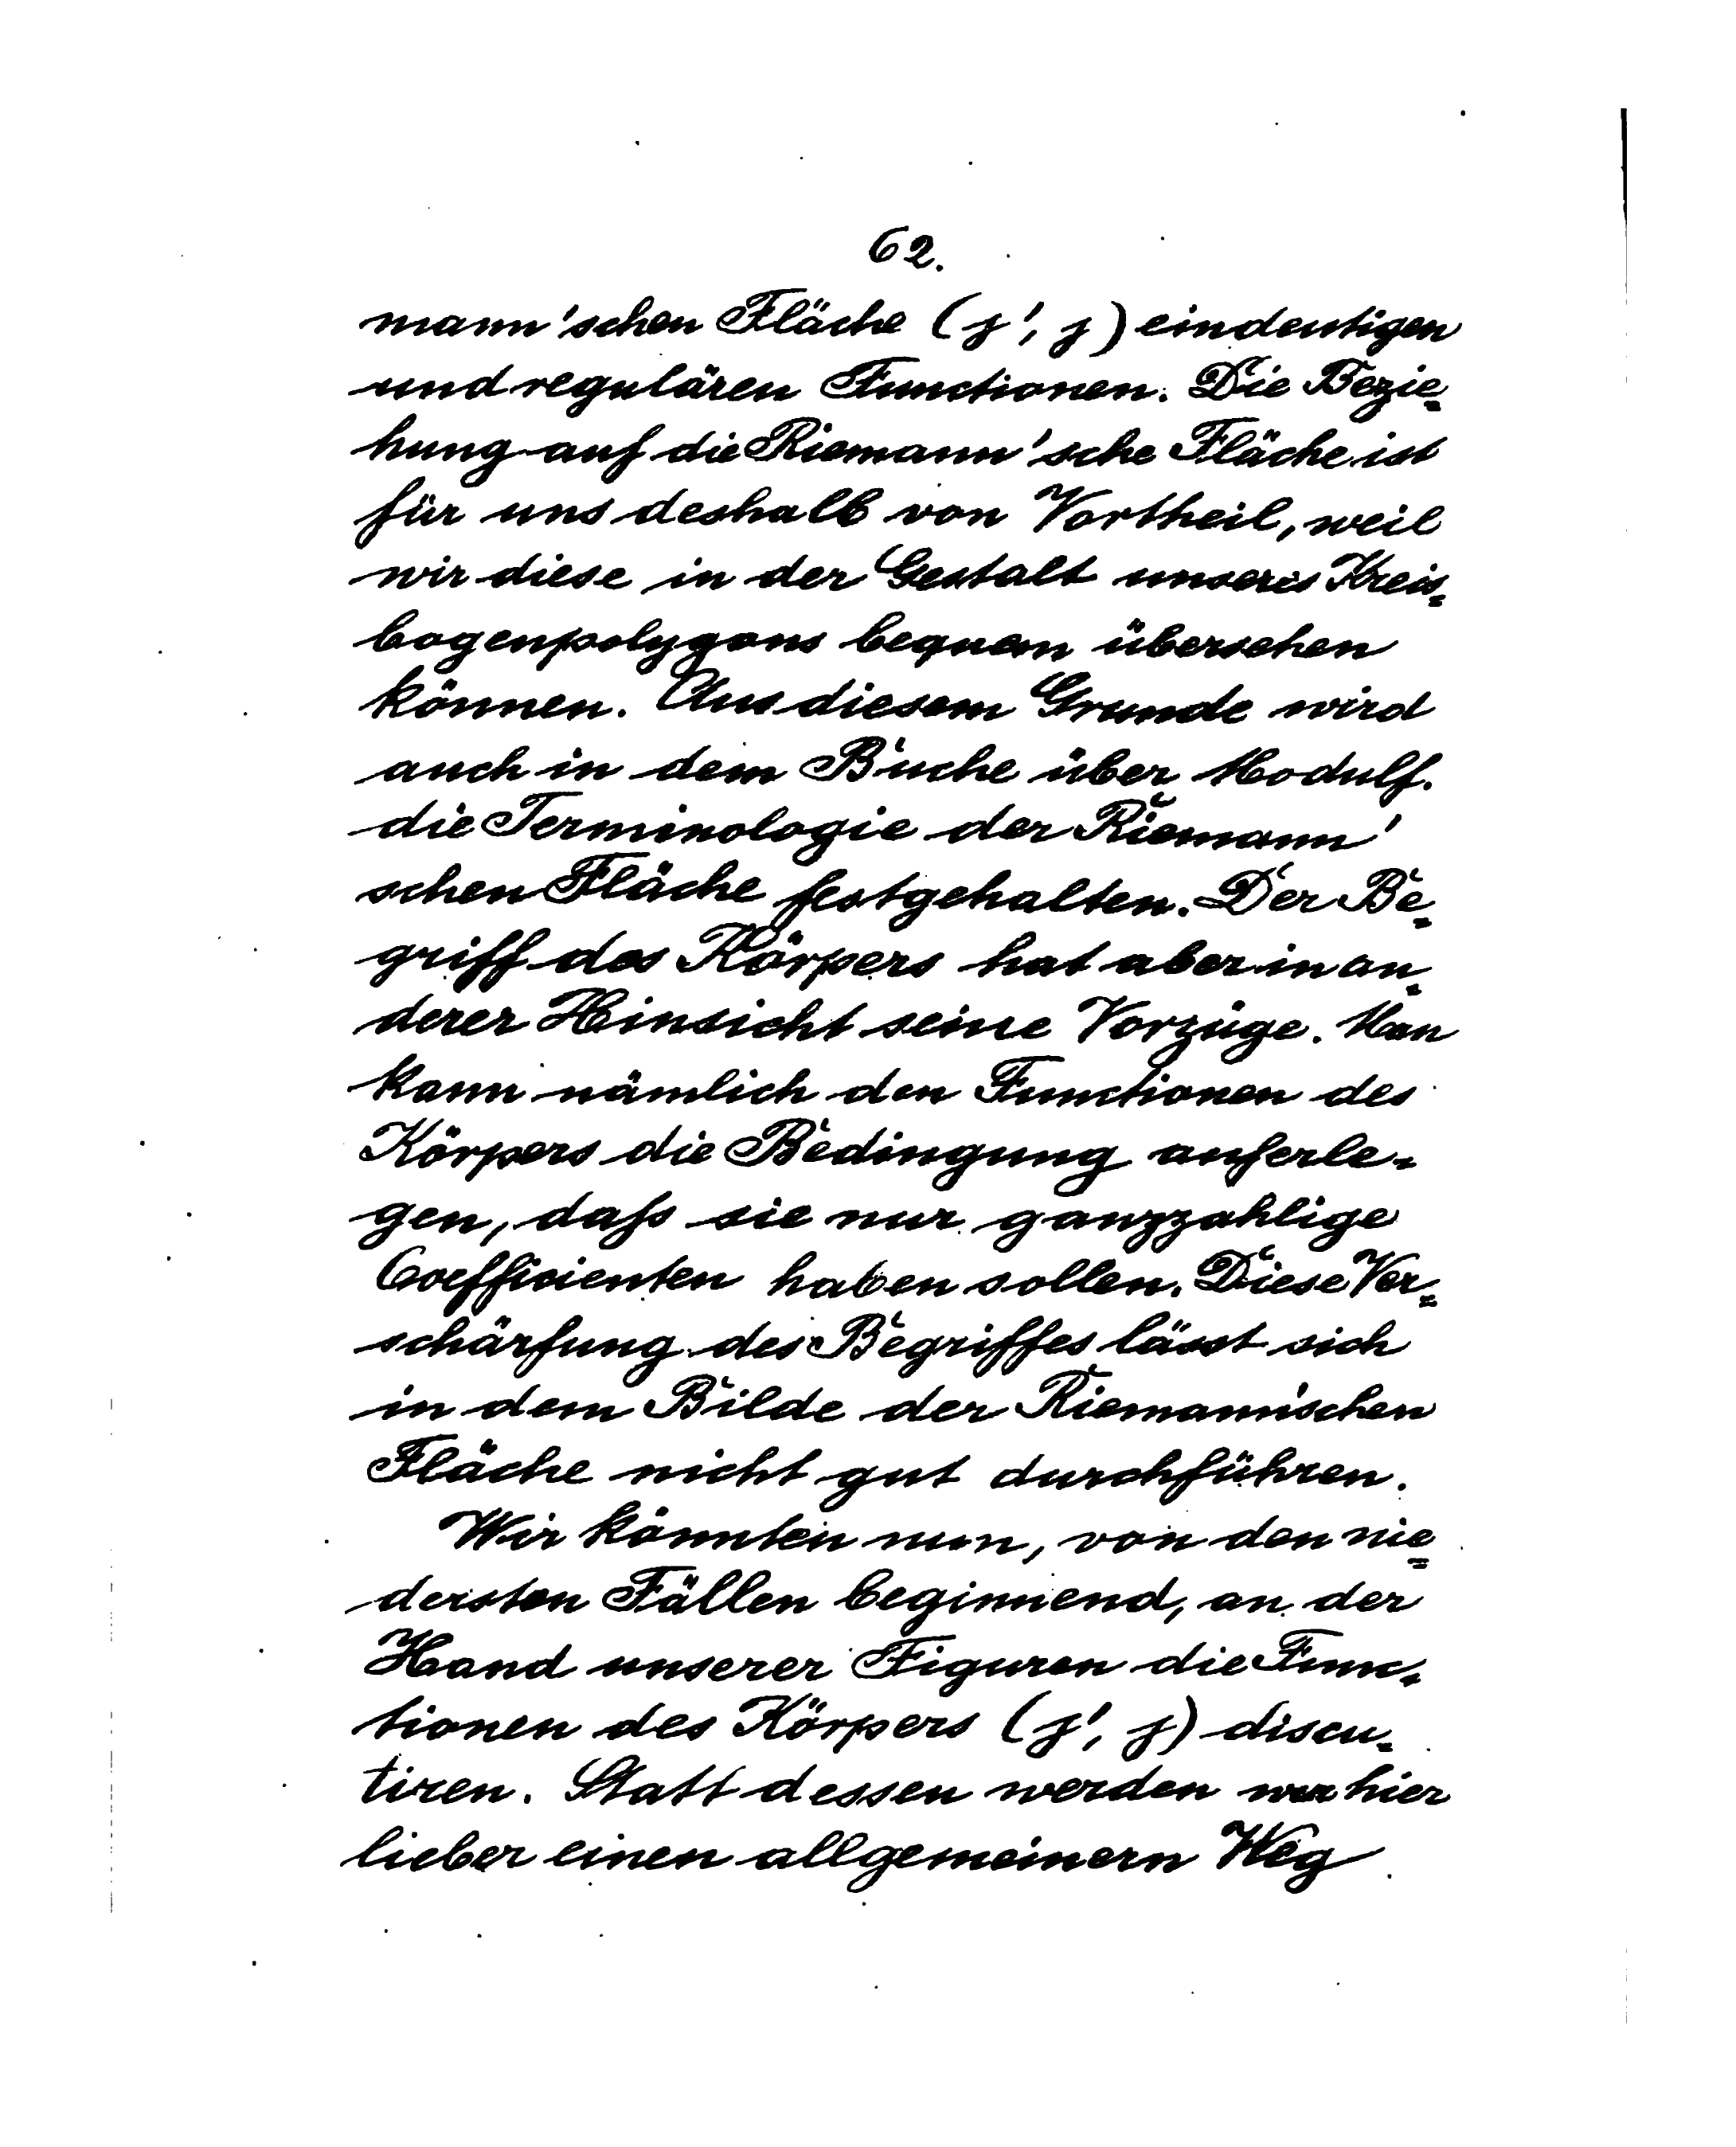 62.
mann'schen Fläche (j', j) eindeutigen
und regulären Functionen. Die Bezie=
hung auf die Riemann'sche Fläche ist
für uns deshalb von Vortheil, weil
wir diese in der Gestalt unseres Kreis=
bogenpolygons bequem übersehen
können. Aus diesem Grunde wird
auch in dem Buche über Modulf.
die Terminologie der Riemann'
schen Fläche festgehalten. Der Be=
griff des Körpers hat aber in an=
derer Hinsicht seine Vorzüge. Man
kann nämlich den Functionen des
Körpers die Bedingung auferle=
gen, daß sie nur ganzzahlige
Coefficienten haben sollen. Diese Ver=
schärfung des Begriffes lässt sich
in dem Bilde der Riemann'schen
Fläche nicht gut durchführen.
Wir könnten nun, von den nie=
dersten Fällen beginnend, an der
Hand unserer Figuren die Func=
tionen des Körpers (j', j) discu=
tiren. Statt dessen werden wir hier
lieber einen allgemeinern Weg